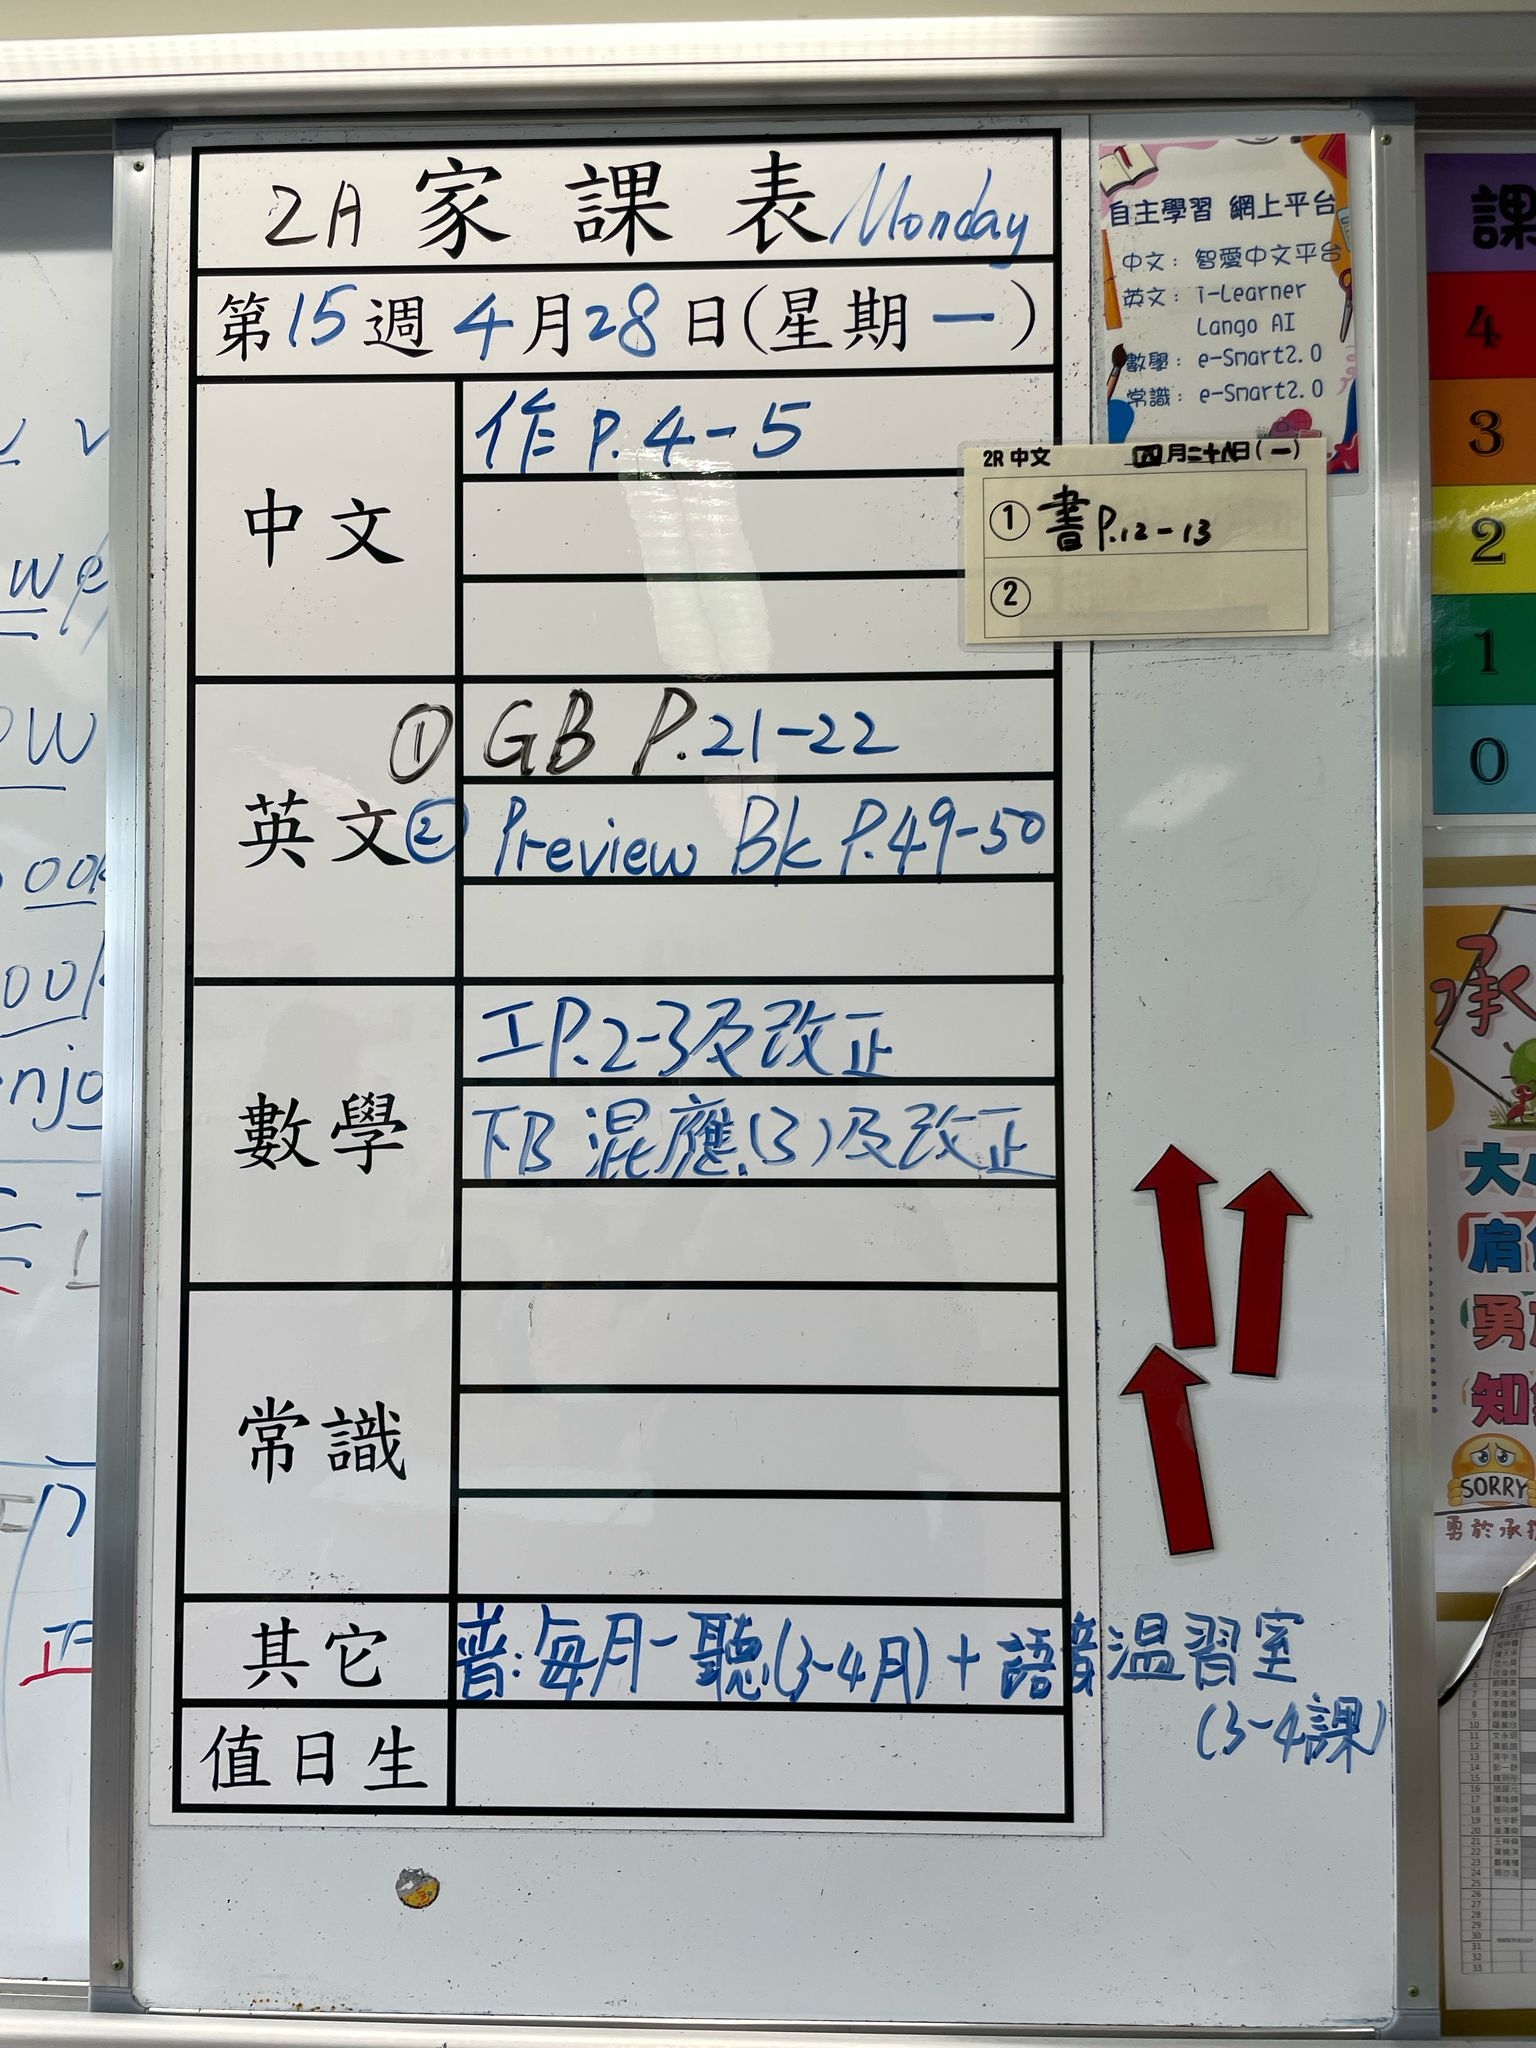 2A 家課表 Monday
第15週 4月28日(星期一)
中文
作 P.4-5
英文
① GB P.21-22
② Preview Bk P.49-50
數學
工P.2-3及改正
下B 混應(3)及改正
常識
其它
普:每月一聽(3-4月)+語接溫習室
(3-4課)
值日生
自主學習 網上平台
中文: 智愛中文平台
英文: i-Learner
Lango AI
數學: e-Smart2.0
常識: e-Smart2.0
2R 中文 四月二十八日(一)
① 書P.12-13
②
課
4
3
2
1
0
承
大
勇
知
SORRY
勇於承